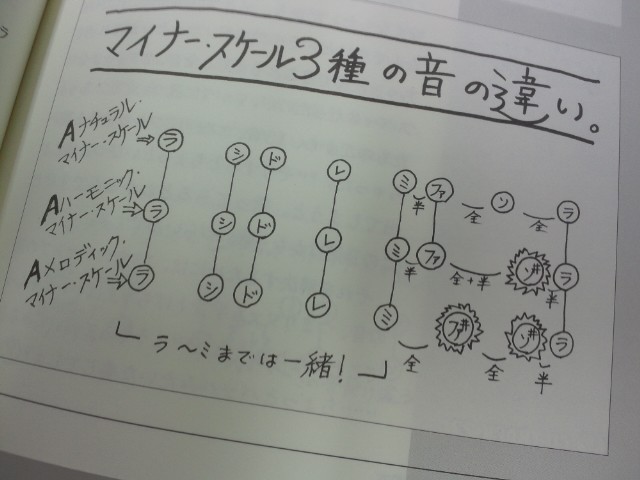 マイナー・スケール3種の音の違い。
Aナチュラル・
マイナー・スケール ⇒ ラ シ ド レ ミ 半 ファ 全 ソ 全 ラ
Aハーモニック・
マイナー・スケール ⇒ ラ シ ド レ ミ 半 ファ 全+半 ソ# 半 ラ
Aメロディック・
マイナー・スケール ⇒ ラ シ ド レ ミ 全 ファ# 全 ソ# 半 ラ
ラ〜ミまでは一緒!